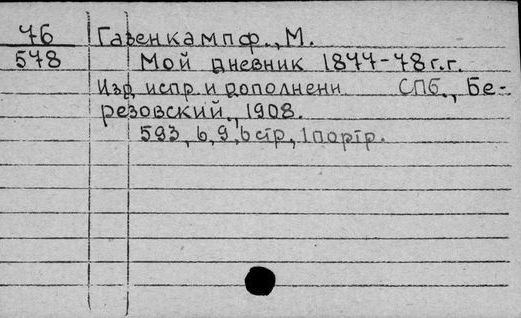 76 Газенкампф., М.
578 Мой дневник 1877-78 г.г.
Изд испр. и дополнени СПб., Бе-
резовский., 1908.
593, 6, 9, 6 стр, 1 портр.